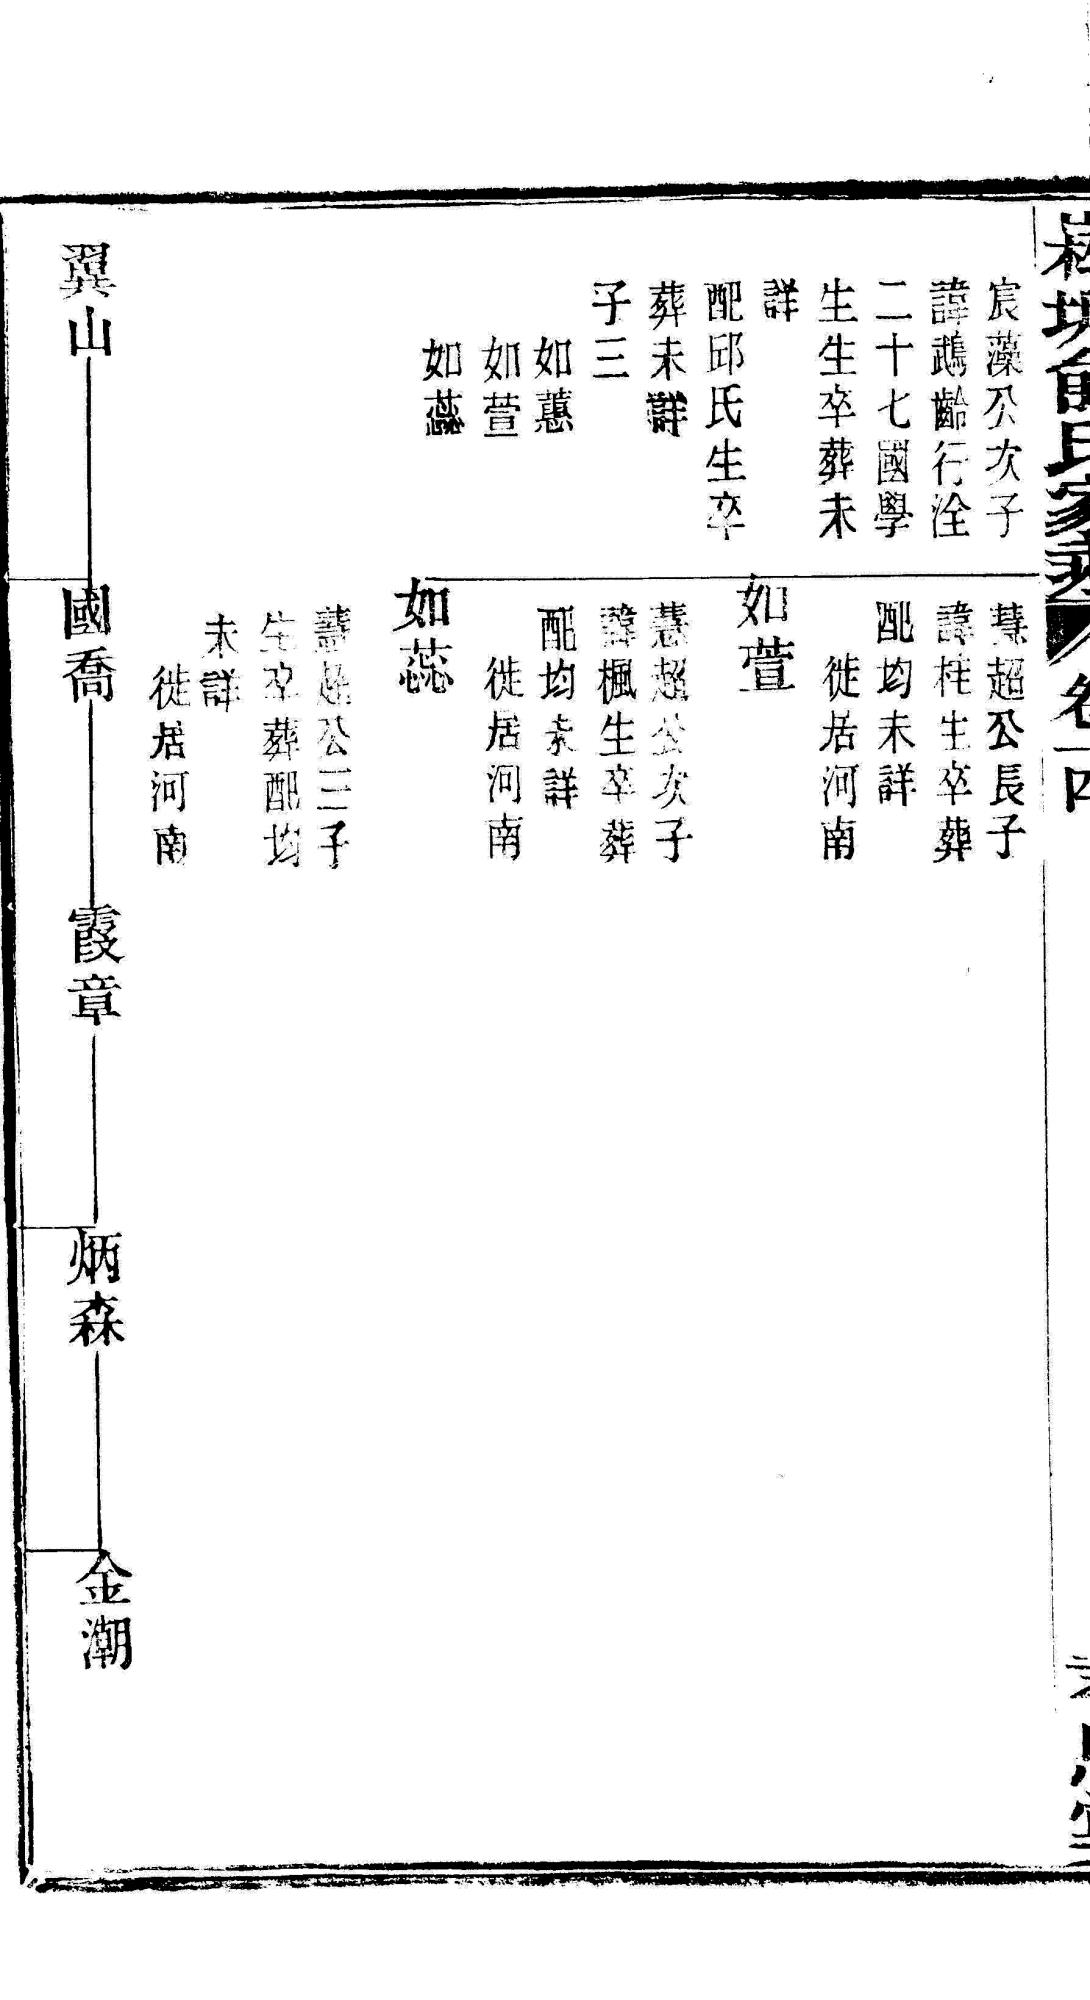 氏家乘 卷十四
宸藻公次子
諱鵡齡行洤
二十七國學
生生卒葬未
詳
配邱氏生卒
葬未詳
子三
如蕙
如萱
如蕊
慧超公長子
諱柱生卒葬
配均未詳
徙居河南
如萱
慧超公次子
諱楓生卒葬
配均未詳
徙居河南
如蕊
慧超公三子
生卒葬配均
未詳
徙居河南
翼山
國喬
霞章
炳森
金潮